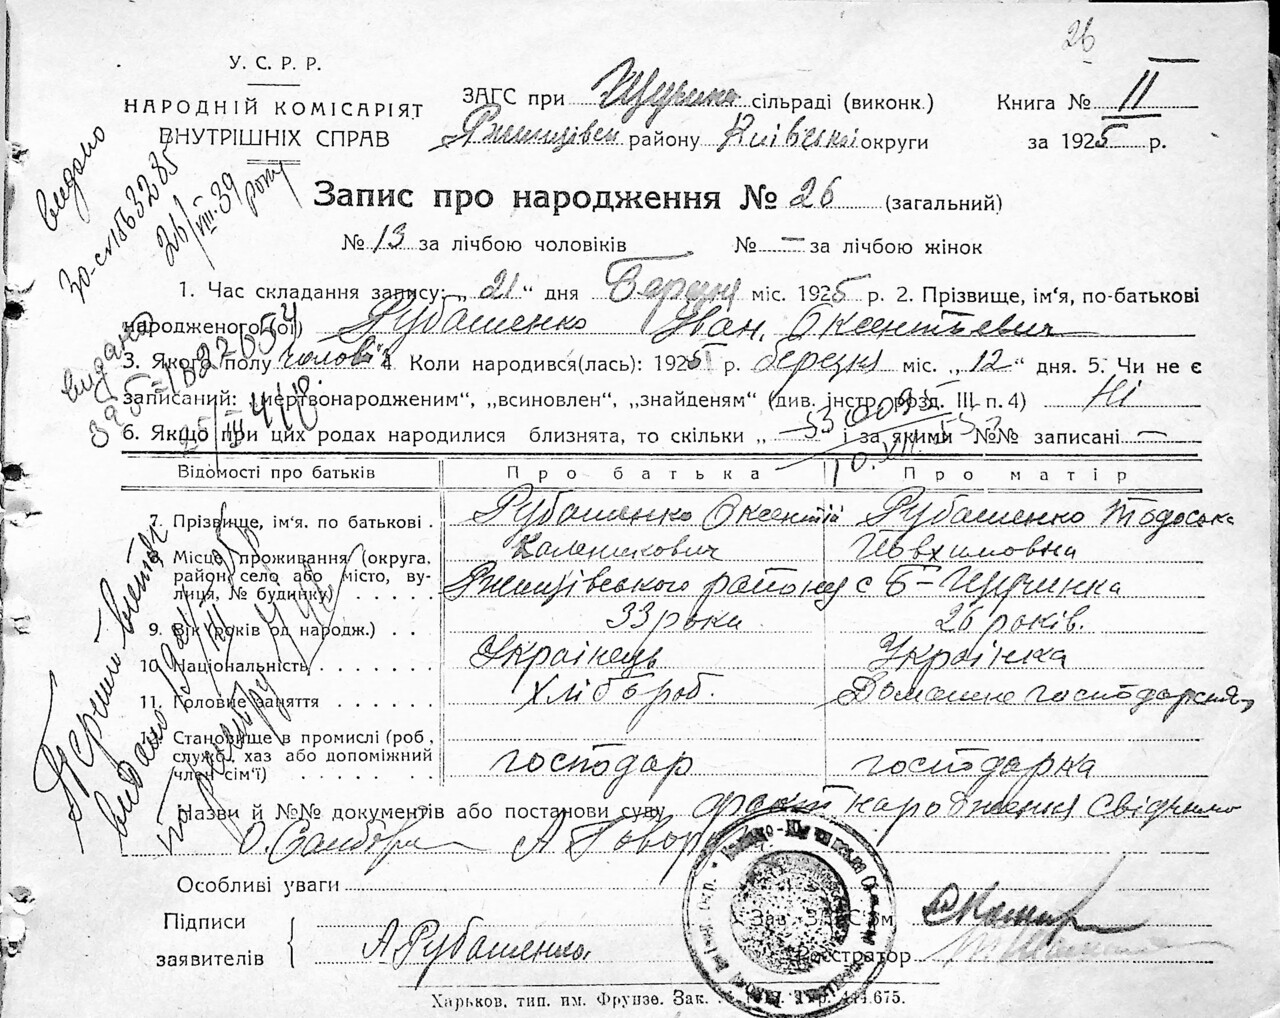 26
У. С. Р. Р.
НАРОДНІЙ КОМІСАРІЯТ
ВНУТРІШНІХ СПРАВ
ЗАГС при сільраді (виконк.)
району Київської округи
Книга № II
за 1925 р.
Запис про народження № 26 (загальний)
№ 13 за лічбою чоловіків № — за лічбою жінок
1. Час складання запису: „ 21 “ дня Березня міс. 1925 р. 2. Прізвище, ім'я, по-батькові
народженого(ої) Рубашенко Іван Оксентьевич
3. Якого полу чолові 4. Коли народився(лась): 1925 р. березня міс. „ 12 “ дня. 5. Чи не є
записаний: „мертвонародженим“, „всиновлен“, „знайденям“ (див. інстр. розд. III п. 4) Ні
6. Якщо при цих родах народилися близнята, то скільки „ — і за якими №№ записані —
Відомості про батьків Про батька Про матір
7. Прізвище, ім'я. по батькові . Рубашенко Оксентій Рубашенко Тодоська
Каленикович Йовхимовна
8. Місце проживання (округа,
район, село або місто, ву-
лиця, № будинку) Ржищівського району с Б-Щучинка
9. Вік (років од народж.) . . 33 роки 26 років.
10. Національність . . . . . . Українець Українка
11. Головне заняття . . . . . . Хлібороб. Домашне господарство
12. Становище в промислі (роб.,
служб., хаз або допоміжний
член сім'ї) господар господарка
Назви й №№ документів або постанови суду факт народження свідчимо
Особливі уваги
Підписи
заявителів А Рубашенко
Зав. ЗАГС'ом
Реєстратор
Харьков, тип. им. Фрунзе. Зак. 444.675.
видано
26/VIII-39 року
видано